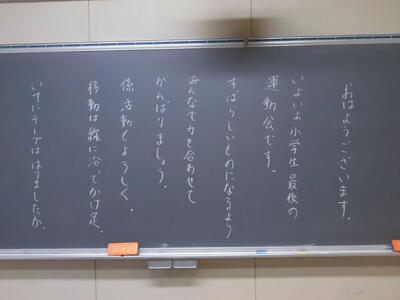 おはようございます。
いよいよ小学生最後の
運動会です。
すばらしいものになるよう
みんなで力を合わせて
がんばりましょう。
係活動もよろしく。
移動は線に沿ってかけ足、
いすにテープははりましたか。